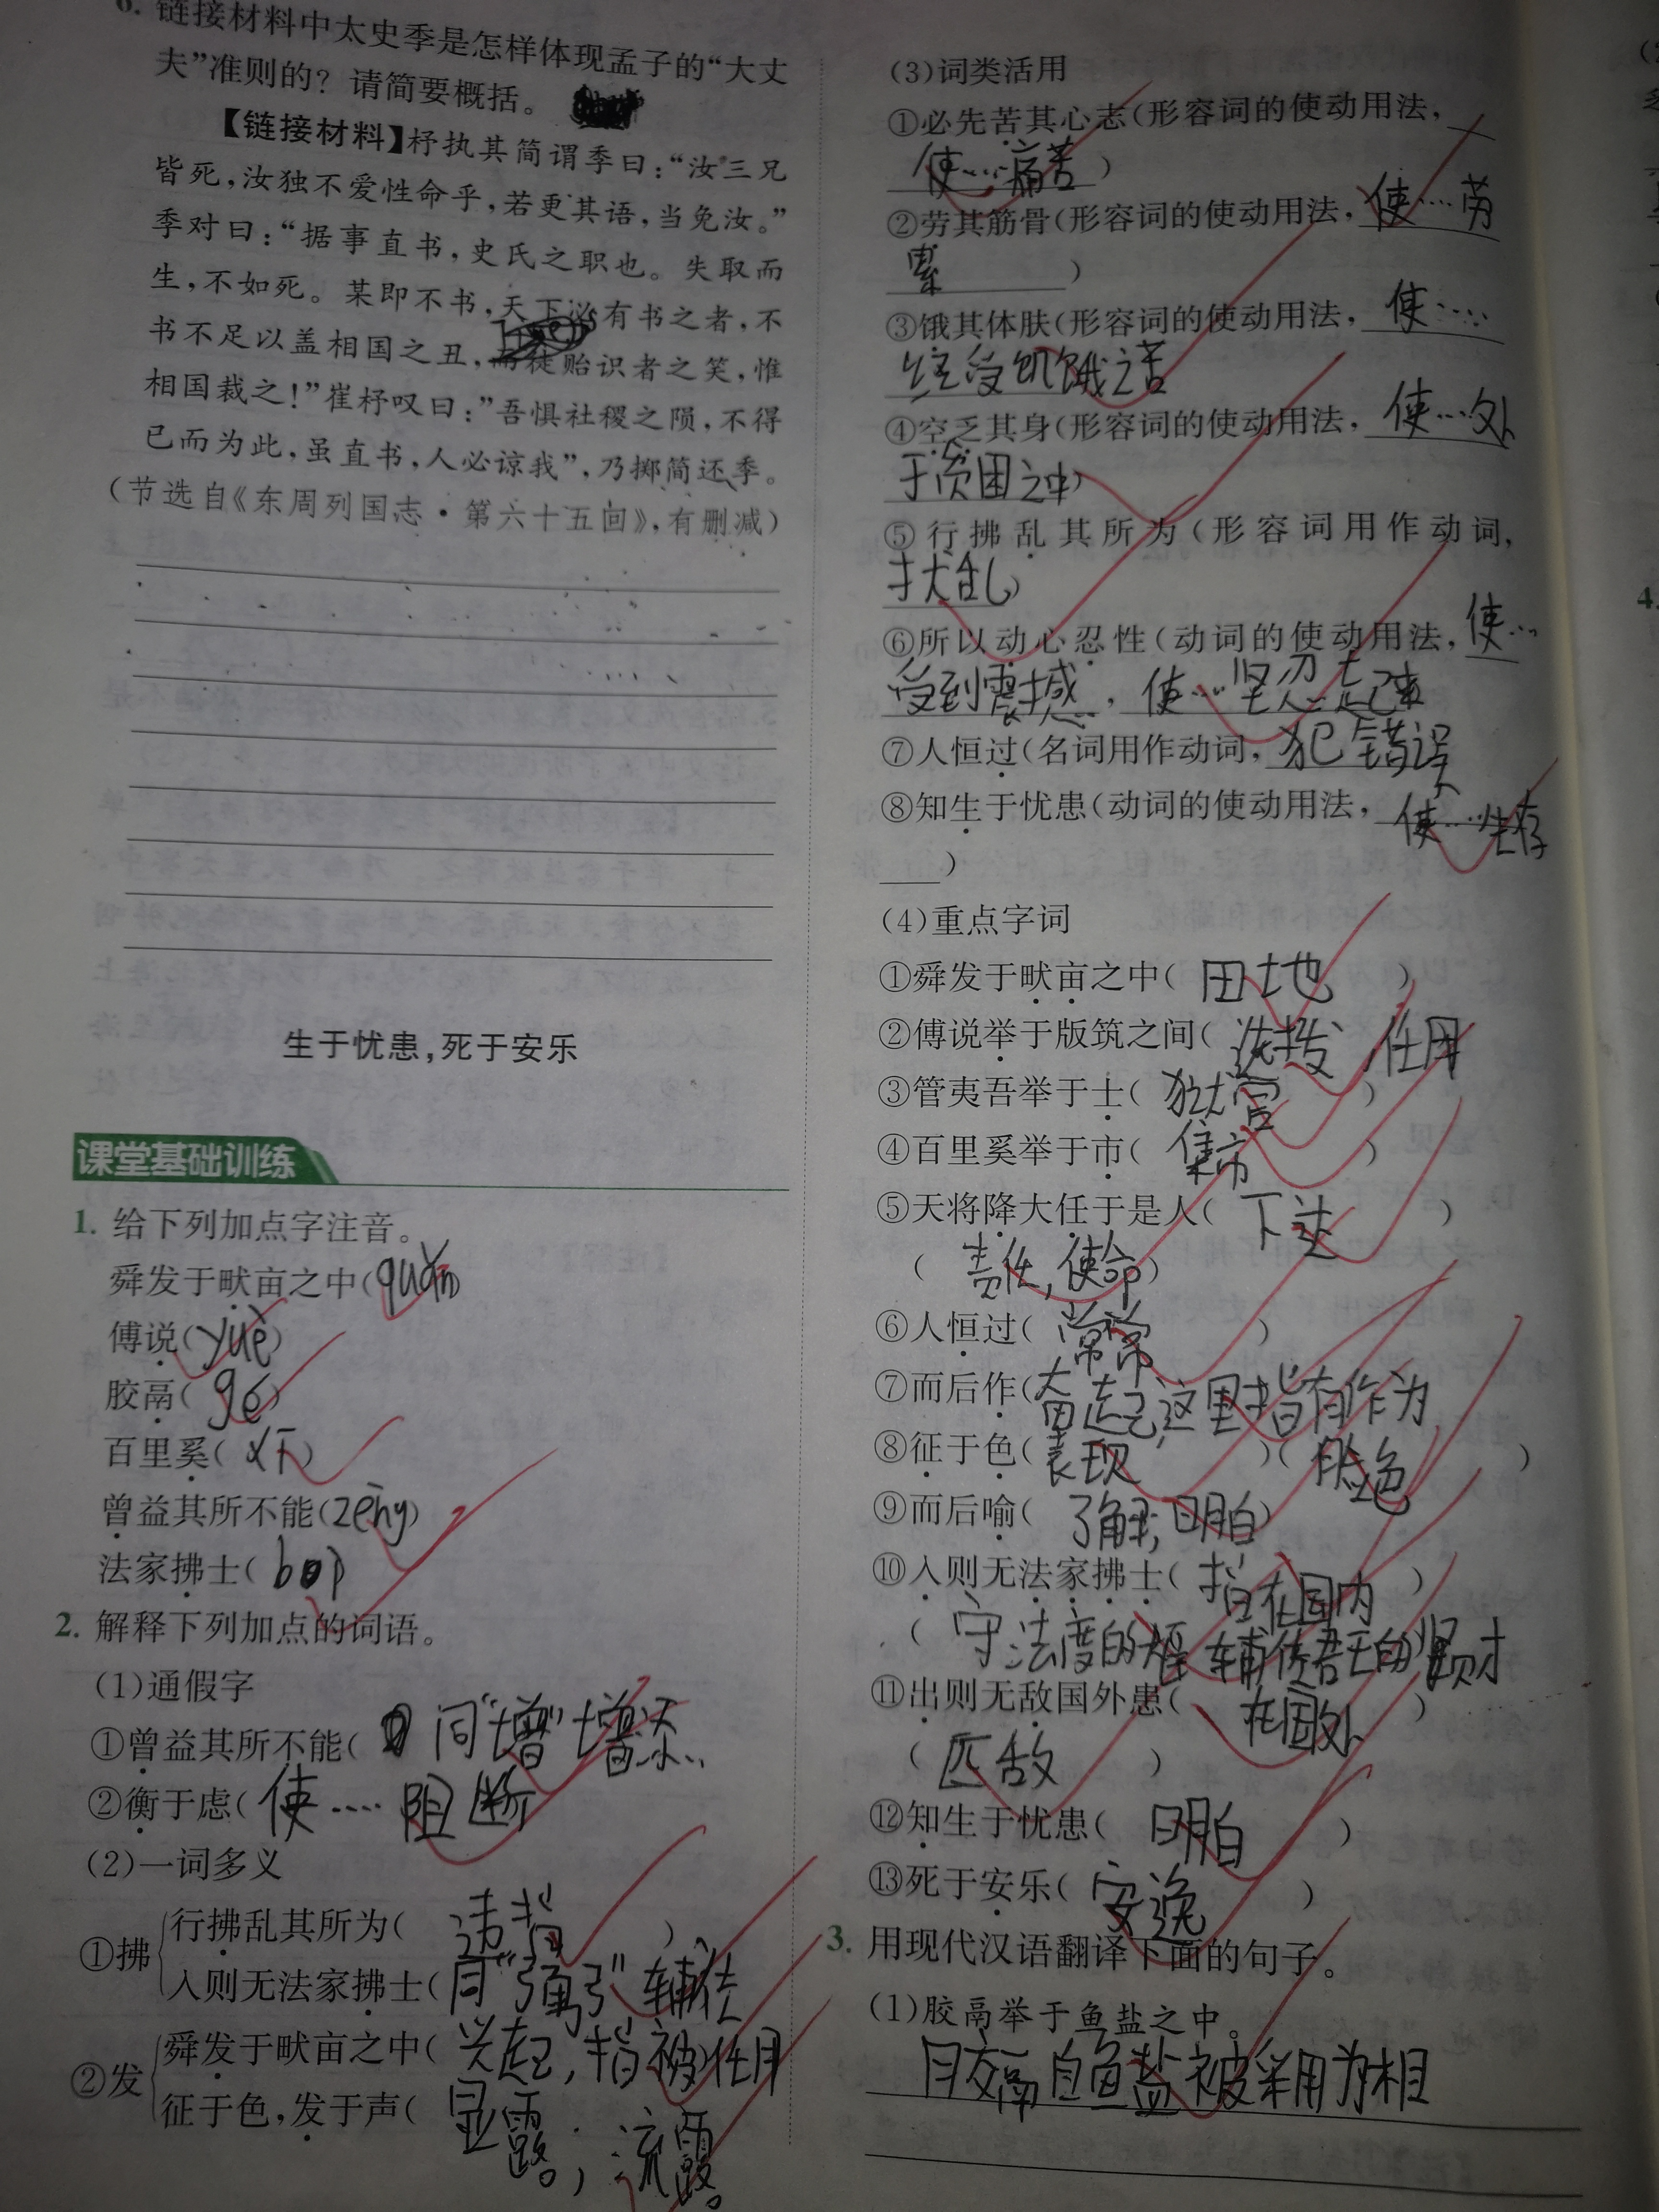 6. 链接材料中太史季是怎样体现孟子的“大丈
夫”准则的？请简要概括。
【链接材料】杼执其简谓季曰：“汝三兄
皆死，汝独不爱性命乎，若更其语，当免汝。”
季对曰：“据事直书，史氏之职也。失取而
生，不如死。某即不书，天下必有书之者，不
书不足以盖相国之丑，而徒贻识者之笑，惟
相国裁之！”崔杼叹曰：”吾惧社稷之陨，不得
已而为此，虽直书，人必谅我”，乃掷简还季。
（节选自《东周列国志·第六十五回》，有删减）
生于忧患，死于安乐
课堂基础训练
1. 给下列加点字注音。
舜发于畎亩之中(quǎn)
傅说(yuè)
胶鬲(gé)
百里奚(xī)
曾益其所不能(zēng)
法家拂士(
2. 解释下列加点的词语。
(1)通假字
①曾益其所不能( 同“增”增添
②衡于虑(使……阻断
(2)一词多义
①拂
行拂乱其所为( 违背 )
入则无法家拂士(同“弼” 辅佐
②发
舜发于畎亩之中(兴起，指被任用
征于色，发于声( 显露；流露。
(3)词类活用
①必先苦其心志(形容词的使动用法，
使……痛苦)
②劳其筋骨(形容词的使动用法，使……劳
累 )
③饿其体肤(形容词的使动用法，使……
经受饥饿之苦
④空乏其身(形容词的使动用法，使……处
于贫困之中)
⑤行拂乱其所为(形容词用作动词，
扰乱)
⑥所以动心忍性(动词的使动用法，使……
受到震撼，使……坚忍起来
⑦人恒过(名词用作动词，犯错误
⑧知生于忧患(动词的使动用法，使……生存
)
(4)重点字词
①舜发于畎亩之中( 田地 )
②傅说举于版筑之间( 选拔，任用
③管夷吾举于士( 狱官 )
④百里奚举于市( 集市 )
⑤天将降大任于是人( 下达 )
( 责任，使命)
⑥人恒过( 常常 )
⑦而后作(奋起，这里指有作为
⑧征于色(表现 )( 脸色 )
⑨而后喻( 了解，明白)
⑩入则无法家拂士( 指在国内 )
( 守法度的 辅佐君王的贤才
⑪出则无敌国外患( 在国外 )
( 匹敌 )
⑫知生于忧患( 明白 )
⑬死于安乐( 安逸 )
3. 用现代汉语翻译下面的句子。
(1)胶鬲举于鱼盐之中。
胶鬲自鱼盐被采用为相